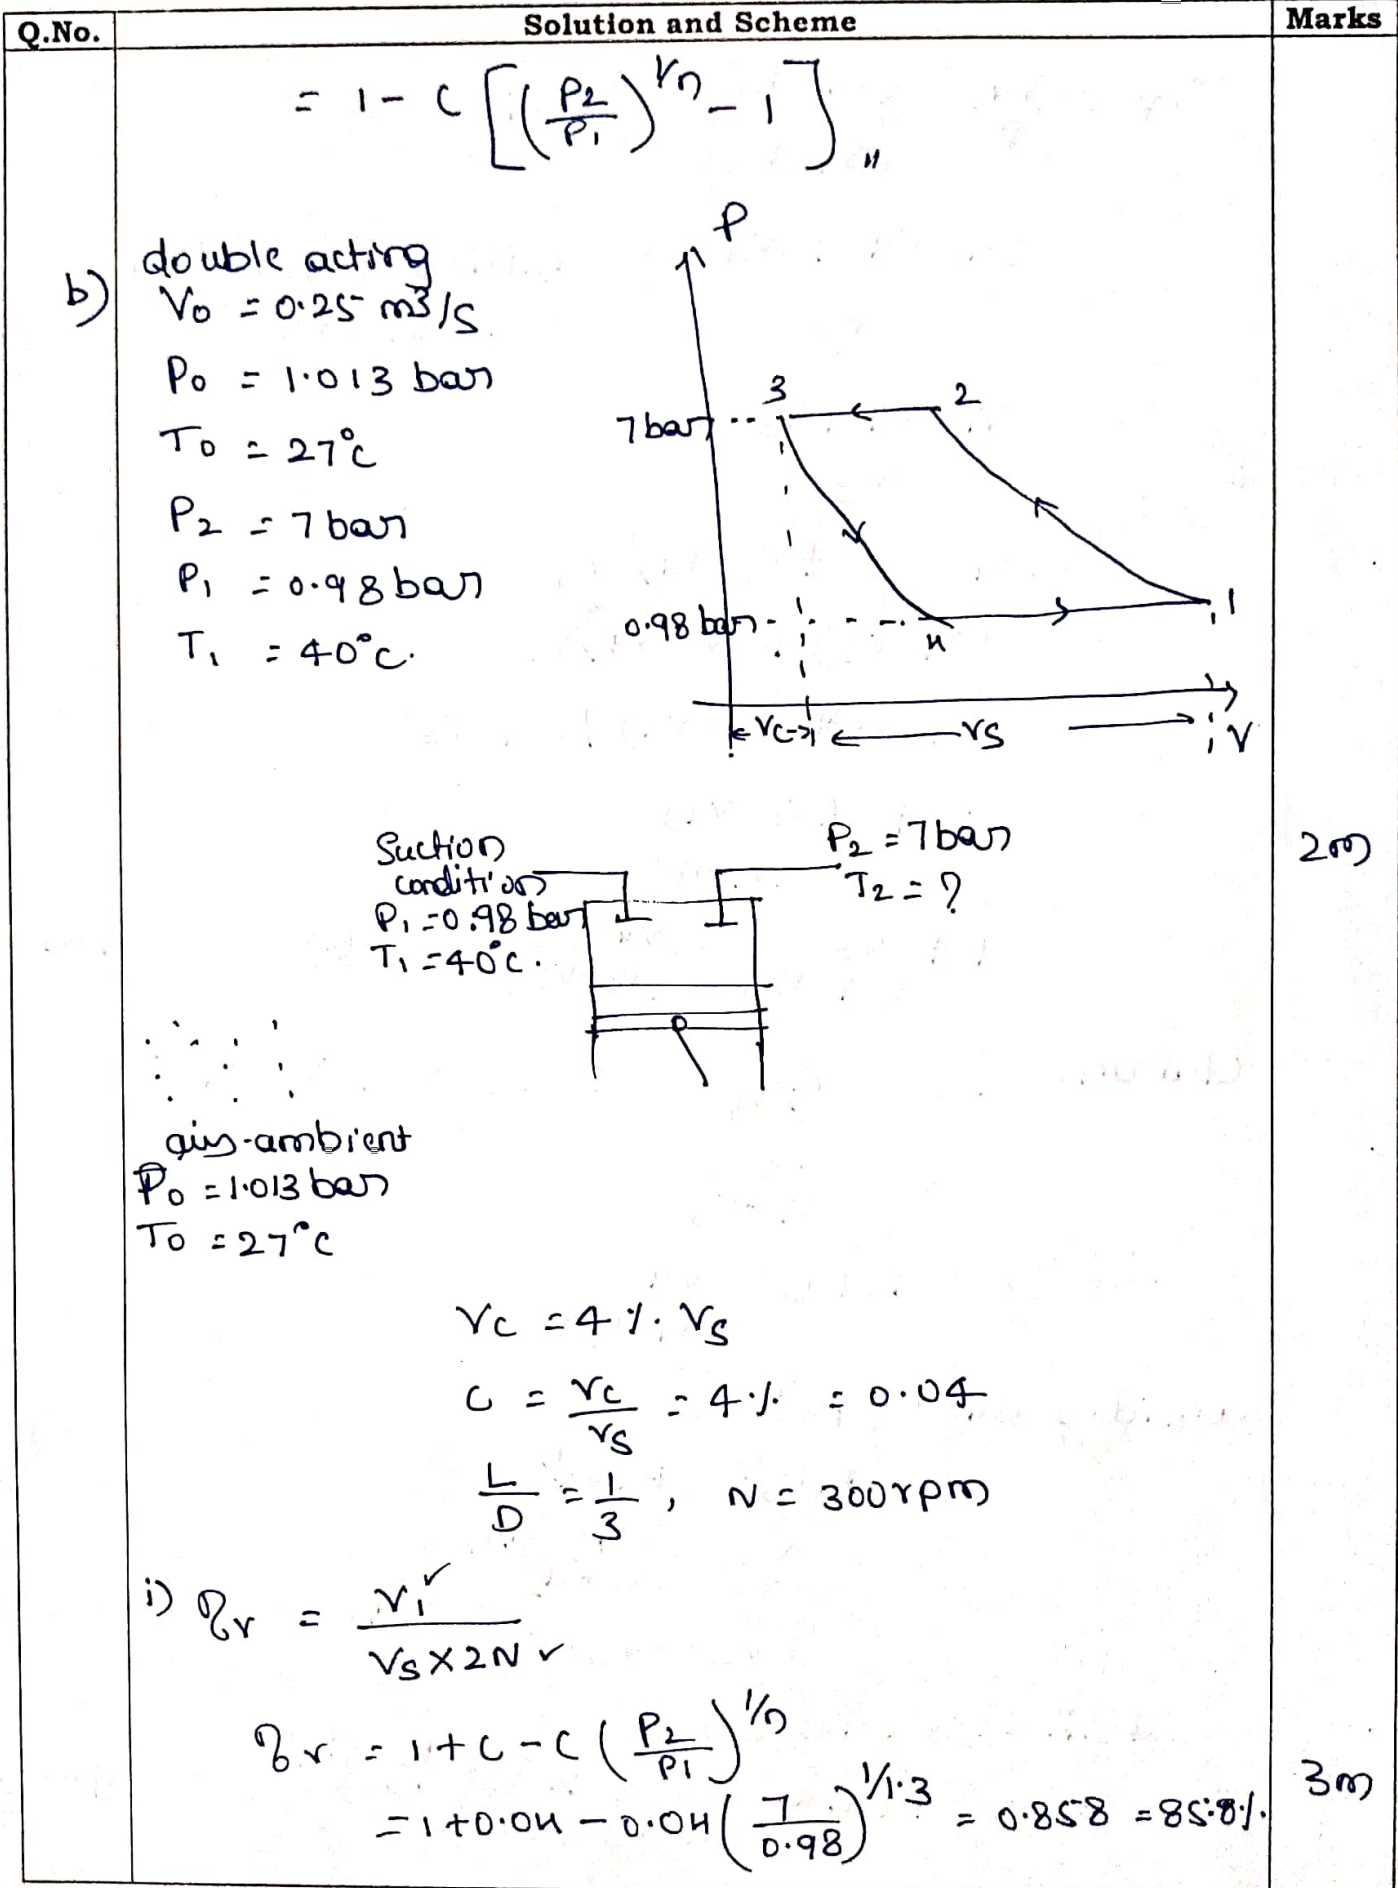 Q.No. Solution and Scheme Marks
= 1 - C [(P2/P1)^1/n - 1] "
b) double acting
V0 = 0.25 m3/s
P0 = 1.013 bar
T0 = 27°C
P2 = 7 bar
P1 = 0.98 bar
T1 = 40°C.
P
3 2
7 bar
0.98 bar 4 1
Vc Vs V
Suction
condition
P1 = 0.98 bar
T1 = 40°C.
P2 = 7 bar
T2 = ?
2m
air-ambient
P0 = 1.013 bar
T0 = 27°C
Vc = 4 %. Vs
C = Vc/Vs = 4 %. = 0.04
L/D = 1/3 , N = 300rpm
i) ηv = V1/Vs X 2N
ηv = 1 + C - C (P2/P1)^1/n
= 1 + 0.04 - 0.04 (7/0.98)^1/1.3 = 0.858 = 85.8 %. 3m